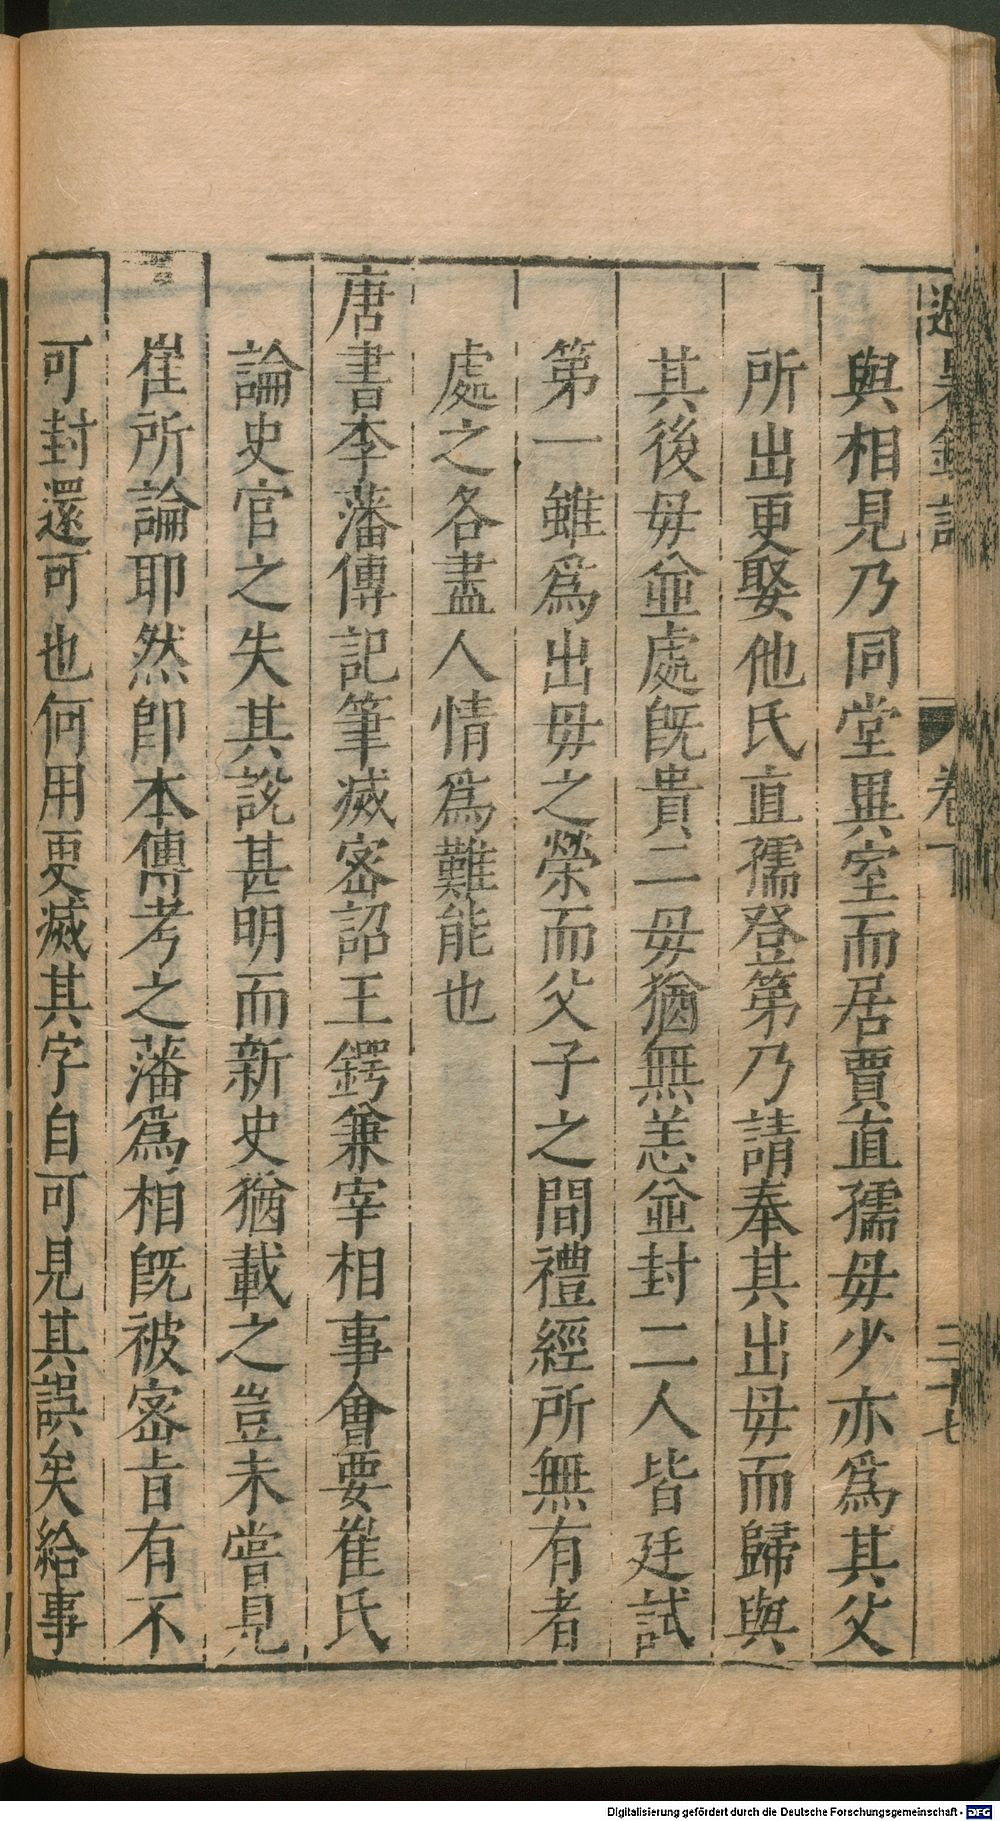 避暑錄話 卷下 三十七
與相見乃同堂異室而居賈直孺母少亦爲其父
所出更娶他氏直孺登第乃請奉其出母而歸與
其後母並處旣貴二母猶無恙並封二人皆廷試
第一雖爲出母之榮而父子之間禮經所無有者
處之各盡人情爲難能也
唐書李藩傳記筆滅密詔王鍔兼宰相事會要崔氏
論史官之失其說甚明而新史猶載之豈未嘗見
崔所論耶然卽本傳考之藩爲相旣被密旨有不
可封還可也何用更滅其字自可見其誤矣給事
Digitalisierung gefördert durch die Deutsche Forschungsgemeinschaft - DFG